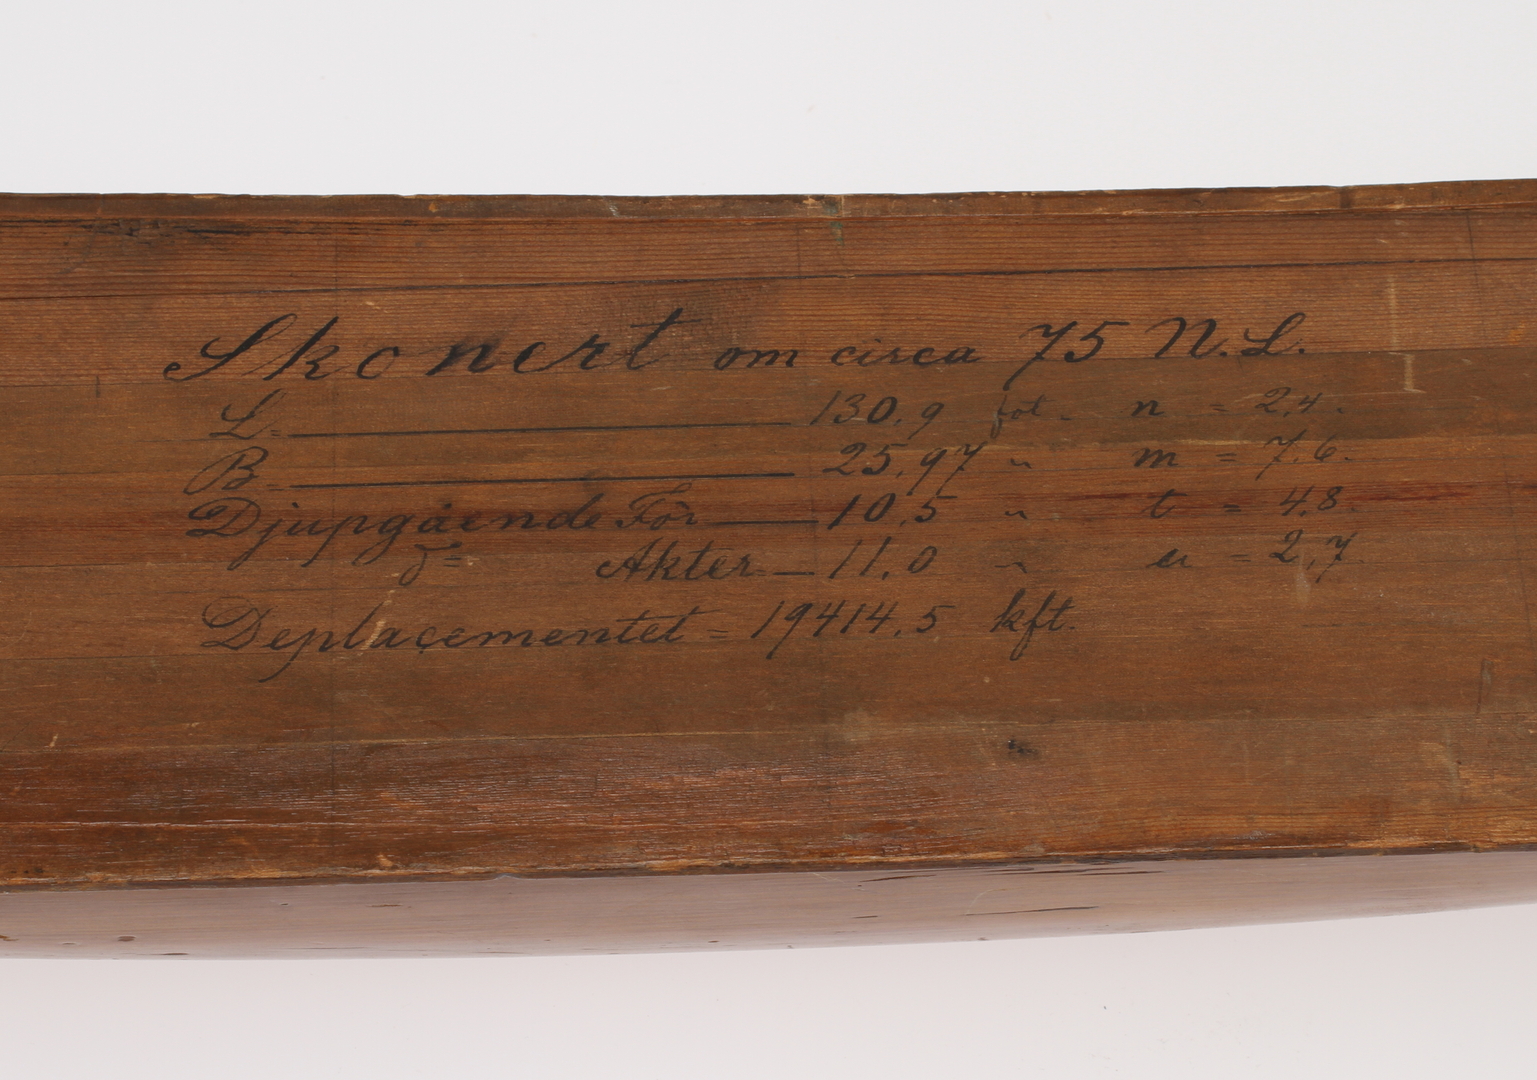 Skonert om circa 75 N.L.
L= 130,9 fot. n = 2,4.
B= 25,97 " m = 7.6.
Djupgående För 10,5 " t = 4,8.
D= Akter 11,0 " u = 2,7.
Deplacementet = 19414,5 kft.